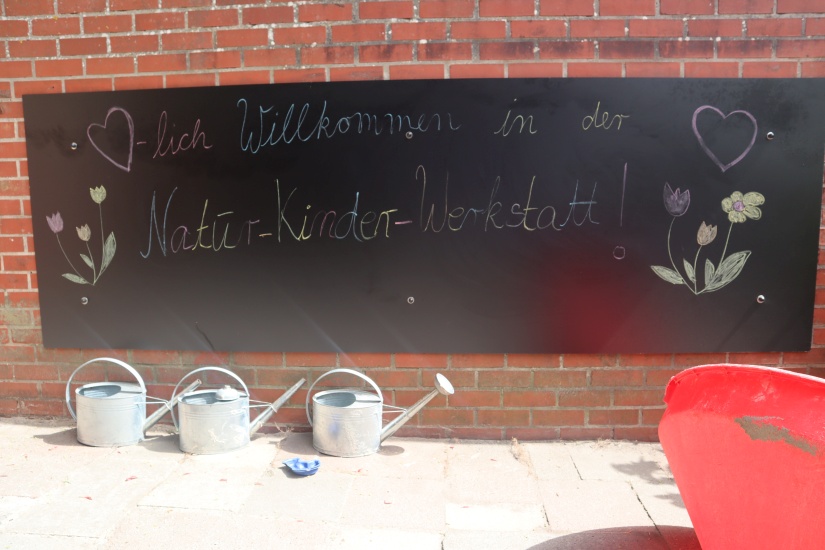 -lich Willkommen in der
Natur-Kinder-Werkstatt!